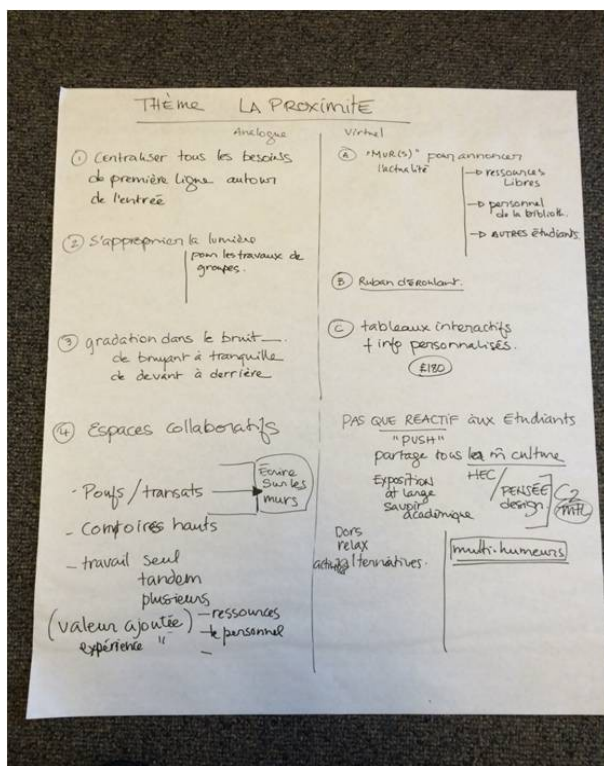 THÈME LA PROXIMITE
Analogue
① Centraliser tous les besoins
de première ligne autour
de l'entrée
② S'approprier la lumière
pour les travaux de
groupes.
③ gradation dans le bruit
de bruyant à tranquille
de devant à derrière
④ Espaces collaboratifs
- Poufs / transats
Écrire
sur les
murs
- Comptoires hauts
- travail seul
tandem
plusieurs
(valeur ajoutée) - ressources
expérience " - le personnel
-
Virtuel
Ⓐ "MUR(S)" pour annoncer
l'actualité
→ ressources
Libres
→ personnel
de la biblioth.
→ AUTRES étudiants
Ⓑ Ruban déroulant.
Ⓒ tableaux interactifs
+ info personnalisés.
PAS QUE REACTIF aux Etudiants
"PUSH"
partage tous la m̂ culture
Exposition
at large
savoir
académique
HEC/
PENSÉE
design
C2
mtl
Dors
relax
alternatives.
multi-humeurs